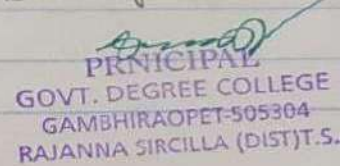 PRNICIPAL
GOVT. DEGREE COLLEGE
GAMBHIRAOPET-505304
RAJANNA SIRCILLA (DIST)T.S.